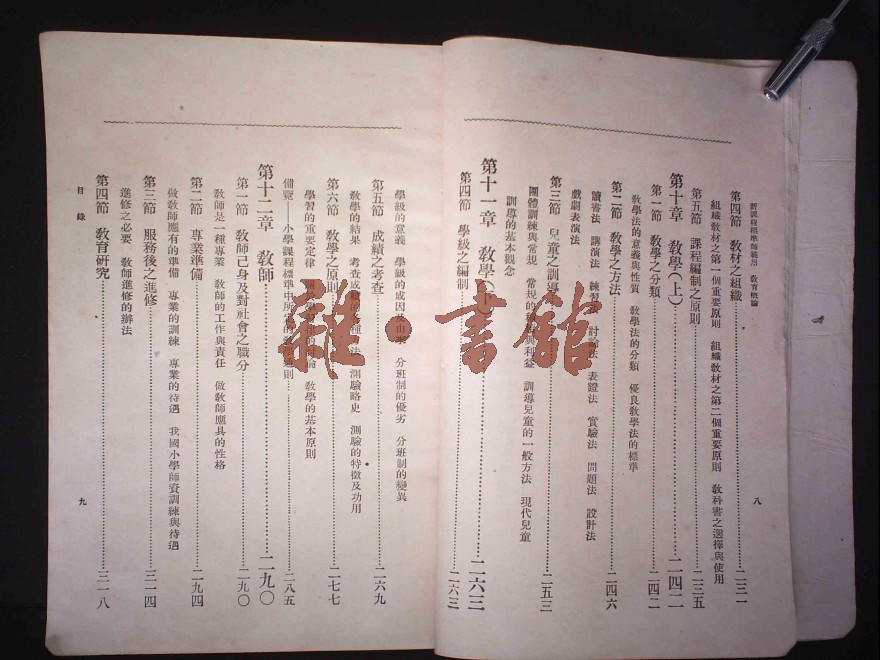 新課程標準師範用 教育概論
八
第四節 教材之組織……二三一
組織教材之第一個重要原則 組織教材之第二個重要原則 教科書之選擇與使用
第五節 課程編制之原則……二三五
第十章 教學(上)……二四二
第一節 教學之分類……二四二
教學法的意義與性質 教學法的分類 優良教學法的標準
第二節 教學之方法……二四六
讀書法 講演法 練習法 討論法 表證法 實驗法 問題法 設計法
戲劇表演法
第三節 兒童之訓導……二五三
團體訓練與常規 常規的種類與利益 訓導兒童的一般方法 現代兒童
訓導的基本觀念
第十一章 教學(下)……二六三
第四節 學級之編制……二六三
學級的意義 學級的成因及由來 分班制的優劣 分班制的變異
第五節 成績之考查……二六九
教學的結果 考查成績的各種方法 測驗略史 測驗的特徵及功用
第六節 教學之原則……二七七
學習的重要定律 教學的基本原則
備覽——小學課程標準中所定的教學通則……二八五
第十二章 教師……二九〇
第一節 教師己身及對社會之職分……二九〇
教師是一種專業 教師的工作與責任 做教師應具的性格
第二節 專業準備……二九四
做教師應有的準備 專業的訓練 專業的待遇 我國小學師資訓練與待遇
第三節 服務後之進修……三一四
進修之必要 教師進修的辦法
第四節 教育研究……三一八
目錄
九
雜·書館